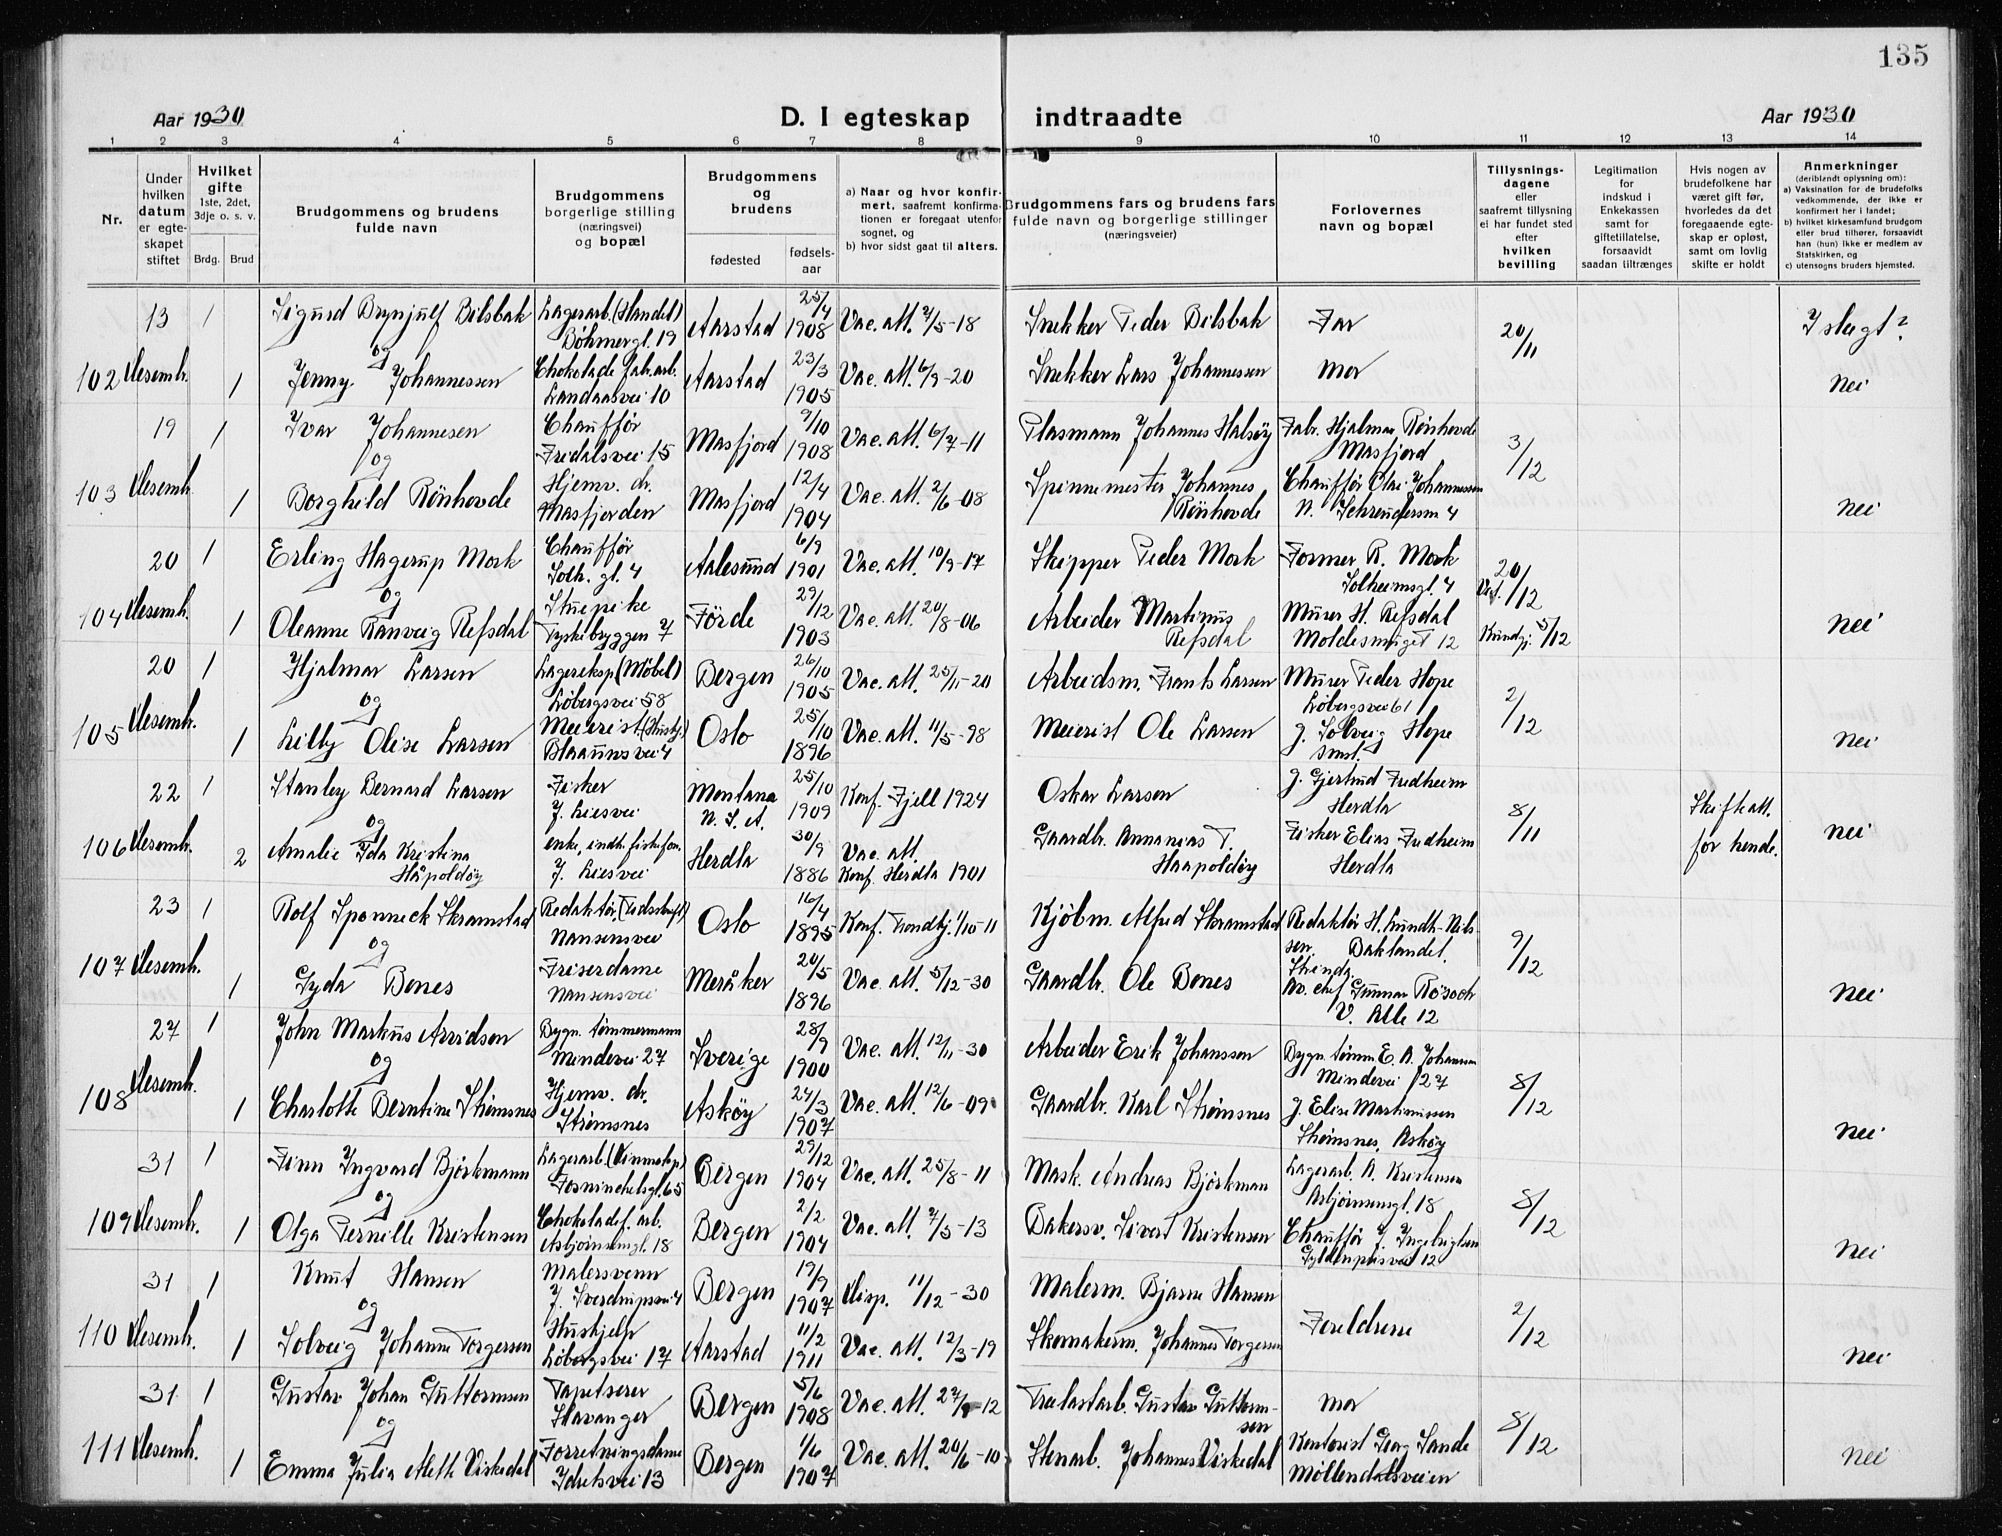 135
Aar 1930
D. I egteskap indtraadte
Aar 1930
1 2 3 4 5 6 7 8 9 10 11 12 13 14
Nr.
Under
hvilken
datum
er egte-
skapet
stiftet
Hvilket
gifte
1ste, 2det,
3dje o. s. v.
Brdg. Brud
Brudgommens og brudens
fulde navn
Brudgommens
borgerlige stilling
(næringsvei)
og bopæl
Brudgommens
og
brudens
fødested
fødsels-
aar
a) Naar og hvor konfir-
mert, saafremt konfirma-
tionen er foregaat utenfor
sognet, og
b) hvor sidst gaat til alters.
Brudgommens fars og brudens fars
fulde navn og borgerlige stillinger
(næringsveier)
Forlovernes
navn og bopæl
Tillysnings-
dagene
eller
saafremt tillysning
ei har fundet sted
efter
hvilken
bevilling
Legitimation
for
indskud i
Enkekassen
samt for
giftetillatelse,
forsaavidt
saadan tiltrænges
Hvis nogen av
brudefolkene har
været gift før,
hvorledes da det
foregaaende egte-
skap er opløst,
samt om lovlig
skifte er holdt
Anmerkninger
(deriblandt oplysning om):
a) Vaksination for de brudefolks
vedkommende, der ikke er
konfirmert her i landet;
b) hvilket kirkesamfund brudgom
eller brud tilhører, forsaavidt
han (hun) ikke er medlem av
Statskirken, og
c) utensogns bruders hjemsted.
102 13 Desemb. 1
Sigurd Brynjulf Bilsbak
Lagerarb. (Handel)
Böhmergt. 19
Aarstad 25/4 1908
Vac. att. 7/5-18
Snekker Peder Bilsbak
Far
20/11
I slegt?
og
1
Jenny Johannessen
Chokolade fabr. arb.
Landaasvei 10
Aarstad 23/3 1905
Vac. att. 6/9-20
Snekker Lars Johannessen
Mor
Nei
103 19 Desemb. 1
Ivar Johannesen
Chauffør
Fridalsvei 15
Masfjord 9/10 1908
Vac. att. 6/7-11
Plasmann Johannes Halsöy
Fabr. Hjalmar Rönhovde
Masfjord
3/12
og
1
Borghild Rönhovde
Hjemv. dr.
Masfjorden
Masfjord 12/4 1904
Vac. att. 2/6-08
Spinnemester Johannes
Rönhovde
Chauffør Olai Johannessen
N. Schreudersm 4
Nei
104 20 Desemb. 1
Erling Hagerup Mork
Chauffør
Solh. gt. 4
Aalesund 6/9 1901
Vac. att. 10/9-17
Skipper Peder Mork
Former R. Mork
Solheimsgt. 4
20/12
og
1
Oleanne Ranveig Refsdal
Stuepike
Tyskebryggen 7
Förde 29/12 1903
Vac. att. 20/8-06
Arbeider Martinus
Refsdal
Murer H. Refsdal
Moldesmuget 12
Kundgj. 5/12
Nei
105 20 Desemb. 1
Hjalmar Larsen
Lagereksp. (Möbel)
Löbergsvei 58
Bergen 26/10 1905
Vac. att. 25/11-20
Arbeidsm. Frants Larsen
Murer Peder Hope
Löbergsvei 61
2/12
og
1
Lilly Olise Larsen
Meierist. (Husbj.)
Blaaunsvei 4
Oslo 25/10 1896
Vac. att. 11/5-98
Meierist Ole Larsen
g. Solveig Hope
smst.
Nei
106 22 Desemb. 1
Stanley Bernard Larsen
Fisker
J. Liesvei
Montana
N. S. A. 25/10 1909
Konf. Fjell 1924
Oskar Larsen
g. Gjertrud Fredheim
Herdla
8/11
Skifteatt.
for hende.
Nei
og
2
Amalie Ida Kristina
Håpoldöy
enke, indh. fiskefor.
J. Liesvei
Herdla 30/9 1886
Vac. att.
Konf. Herdla 1901
Gaardbr. Annanias T.
Haapoldöy
Fisker Elias Fredheim
Herdla
107 23 Desemb. 1
Rolf Sponneck Skramstad
Redaktør. (Tidsskrift)
Nansensvei
Oslo 16/4 1895
Konf. Trondhj. 1/10-11
Kjöbm. Alfred Skramstad
Redaktør H. Lundh-Nils-
sen, Baklandet.
9/12
og
1
Gyda Bones
Friserdame
Nansensvei
Meråker 20/5 1896
Vac. att. 5/12-30
Gaardbr. Ole Bones
Strinda
Av. chef Gunnar Rösoch
V. Alle 12
Nei
108 27 Desemb. 1
John Markus Arvidson
Bygn. tömmermann
Mindevei 27
Sverige 28/9 1900
Vac. att. 12/11-30
Arbeider Erik Johanssen
Bygn. tömm E. A. Johannsen
Mindevei 127
8/12
og
1
Charlotte Berntine Strömsnes
Hjemv. dr.
Strömsnes
Asköy 24/3 1907
Vac. att. 12/6-09
Gaardbr. Karl Strömsnes
g. Elise Martinussen
Strömsnes, Asköy
Nei
109 31 Desemb. 1
Finn Ingvard Björkmann
Lagerarb. (Vinmonop.)
Fosvinckelsgt. 65
Bergen 29/12 1904
Vac. att. 25/8-11
Mask. Andreas Björkman
Lagerarb. A. Kristensen
Asbjörnsensgt. 18
8/12
og
1
Olga Pernille Kristensen
Chokoladef. arb.
Asbjörnsensgt. 18
Bergen 2/2 1904
Vac. att. 7/5-13
Bakersv. Sivert Kristensen
Chauffør J. Ingebrigtsen
Gyldenprisvei 12
Nei
110 31 Desemb. 1
Knut Hansen
Malersvenn
J. Sverdrupsvei 4
Bergen 19/9 1907
Disp. 11/12-30
Malerm. Bjarne Hansen
Foreldrene
2/12
og
1
Solveig Johanne Torgersen
Hushjelp
Löbergsvei 17
Aarstad 11/2 1911
Vac. att. 12/3-19
Skomakerm. Johannes Torgersen
Nei
111 31 Desemb. 1
Gustav Johan Guttormsen
Tapetserer
Stavanger
Bergen 5/6 1908
Vac. att. 27/9-12
Trælastarb. Gustav Guttorm-
sen
Mor
8/12
og
1
Emma Julia Alette Virkedal
Forretningsdame
Idretsvei 13
Bergen 1/6 1907
Vac. att. 20/6-10
Stenarb. Johannes Virkedal
Kontorist Georg Sande
Möllendalsveien
Nei